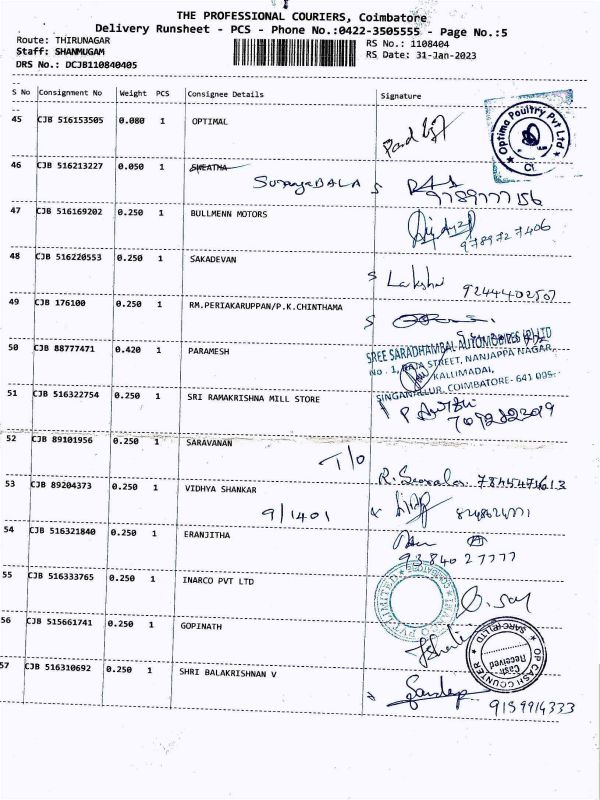 THE PROFESSIONAL COURIERS, Coimbatore
Delivery Runsheet - PCS - Phone No.:0422-3505555 - Page No.:5
Route: THIRUNAGAR
RS No.: 1108404
Staff: SHANMUGAM
RS Date: 31-Jan-2023
DRS No.: DCJB110840405
S No Consignment No Weight PCS Consignee Details Signature
45 CJB 516153505 0.080 1 OPTIMAL
Optima Poultry Pvt Ltd
46 CJB 516213227 0.050 1 SWEATHA
47 CJB 516169202 0.250 1 BULLMENN MOTORS
9789727406
48 CJB 516220553 0.250 1 SAKADEVAN
S Lakshmi
49 CJB 176100 0.250 1 RM.PERIAKARUPPAN/P.K.CHINTHAMA
50 CJB 88777471 0.420 1 PARAMESH
SREE SARADHAMBAL AUTOMOBILES (P) LTD
No. 1, RAJA STREET, NANJAPPA NAGAR,
KALLIMADAI,
SINGANALLUR, COIMBATORE- 641 005.
51 CJB 516322754 0.250 1 SRI RAMAKRISHNA MILL STORE
52 CJB 89101956 0.250 1 SARAVANAN
T/O
53 CJB 89204373 0.250 1 VIDHYA SHANKAR
9/1401
54 CJB 516321840 0.250 1 ERANJITHA
9384027777
55 CJB 516333765 0.250 1 INARCO PVT LTD
56 CJB 515661741 0.250 1 GOPINATH
OP CASH COUNTER
Cash Received
57 CJB 516310692 0.250 1 SHRI BALAKRISHNAN V
9159914333